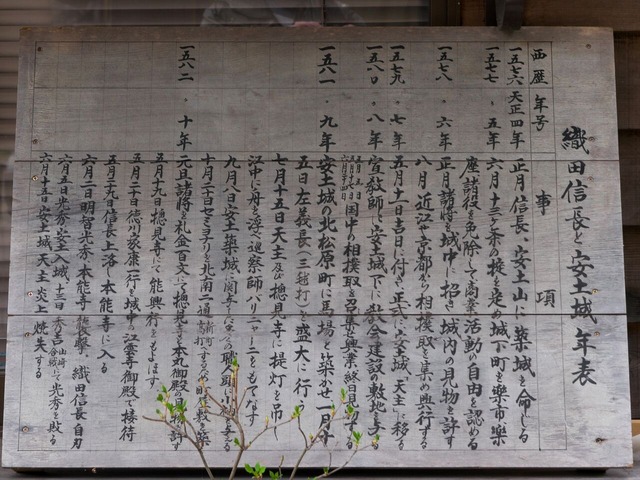 織田信長と安土城年表
西歴 年号 事項
一五七六 天正四年 正月信長、安土山に築城を命じる
一五七七 〃 五年 六月十三ケ条の掟を定め城下町を楽市楽
座諸役を免除して商業活動の自由を認める
一五七八 〃 六年 正月諸将を城中に招き城内の見物を許す
八月近江や京都から相撲取を集め興行する
一五七九 〃 七年 五月十一日吉日に付き正式に安土城「天主」に移る
一五八〇 〃 八年 宣教師に安土城下に教会建設の敷地を与る
国中の相撲取を召集め興業終日見物する
一五八一 〃 九年 安土城の北松原町に馬場を築かせ一月十
五日左義長(三毬打)を盛大に行う
七月十五日天主及び摠見寺に提灯を吊し
江中に舟を浮べ巡察師バリニャーニをもてなす
九月八日安土築城に関与した
十月二十日セミナリヨを北南二通
一五八二 〃 十年 元旦諸将を礼金百文にて摠見寺と本丸御殿の見物を許す
五月十九日摠見寺にて能興行をもよほす
五月二十日徳川家康一行を城中の江雲寺御殿で接待
五月二十九日信長上洛し本能寺に入る
六月二日明智光秀、本能寺を襲撃、織田信長自刃
六月五日光秀安土入城、十三日秀吉山崎の合戦にて光秀を敗る
六月十五日安土城、天主炎上焼失する